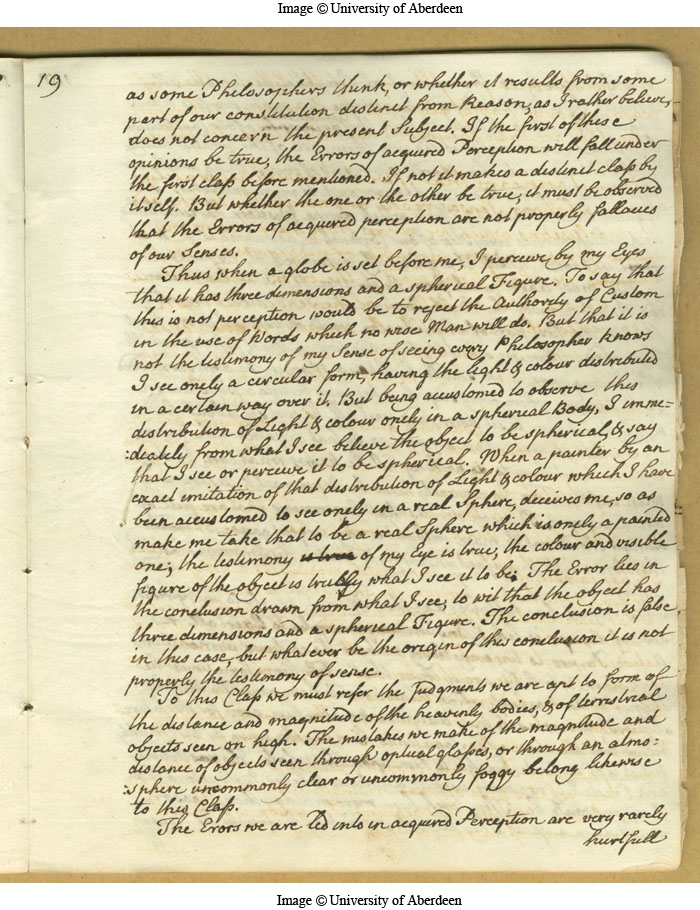 Image © University of Aberdeen
19
as some Philosophers think, or whether it results from some
part of our constitution distinct from Reason, as I rather believe,
does not concern the present Subject. If the first of these
opinions be true, the Errors of acquired Perception will fall under
the first class before mentioned. If not it makes a distinct class by
itself. But whether the one or the other be true, it must be observed
that the Errors of acquired perception are not properly fallacies
of our Senses.
Thus when a globe is set before me, I perceive by my Eyes
that it has three dimensions and a spherical Figure. To say that
this is not perception would be to reject the Authority of Custom
in the use of Words which no wise Man will do. But that it is
not the testimony of my Sense of seeing every Philosopher knows
I see onely a circular form, having the light & colour distributed
in a certain way over it. But being accustomed to observe this
distribution of Light & colour onely in a spherical Body, I imme=
:diately from what I see believe the object to be spherical, & say
that I see or perceive it to be spherical. When a painter by an
exact imitation of that distribution of Light & colour which I have
been accustomed to see onely in a real Sphere, deceives me, so as
make me take that to be a real Sphere which is onely a painted
one; the testimony is true of my Eye is true, the colour and visible
figure of the object is truely what I see it to be; The Error lies in
the conclusion drawn from what I see; to wit that the object has
three dimensions and a spherical Figure. The conclusion is false
in this case, but whatever be the origin of this conclusion it is not
properly the testimony of sense.
To this Class we must refer the Judgments we are apt to form of
the distance and magnitude of the heavenly bodies, & of terrestrial
objects seen on high. The mistakes we make of the magnitude and
distance of objects seen through optical glasses, or through an atmo:
:sphere uncommonly clear or uncommonly foggy belong likewise
to this Class.
The Erors we are led into in acquired Perception are very rarely
hurtfull
Image © University of Aberdeen